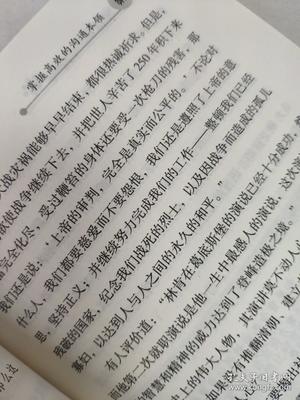 掌握高效的沟通本领
大战灾祸能够早早结束，都很热诚祈求。但是，
欲使战争继续下去，并把世人辛苦了250年积下来
完全化尽，受过鞭笞的身体还要受一次枪刀的残害，那
我们还是说：‘上帝的审判，完全是真实而公平的。’不论对
什么人，我们都要慈爱而不要怨恨，我们还是遵照了上帝的意
思，坚持正义；并继续努力完成我们的工作——整顿我们已经
的国家，纪念我们战死的烈士，以及因战争而造成的孤儿
寡妇，以达到人与人之间的永久的和平。”
有人评价道：“林肯在葛底斯堡的演说已经十分成功，
而他第二次就职演说是他一生中最感人的演说，这次
智慧和精神的威力达到了登峰造极之境。
上的伟大人物，其演讲莫不动人
推翻清朝，建立
孔夫子旧书网